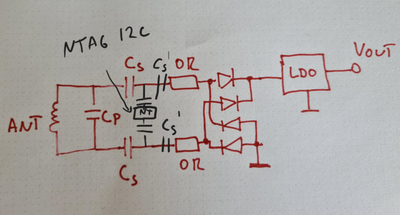 NTAG I2C
Cs
Cs'
0R
VOUT
LDO
ANT
CP
NT
Cs'
Cs
0R